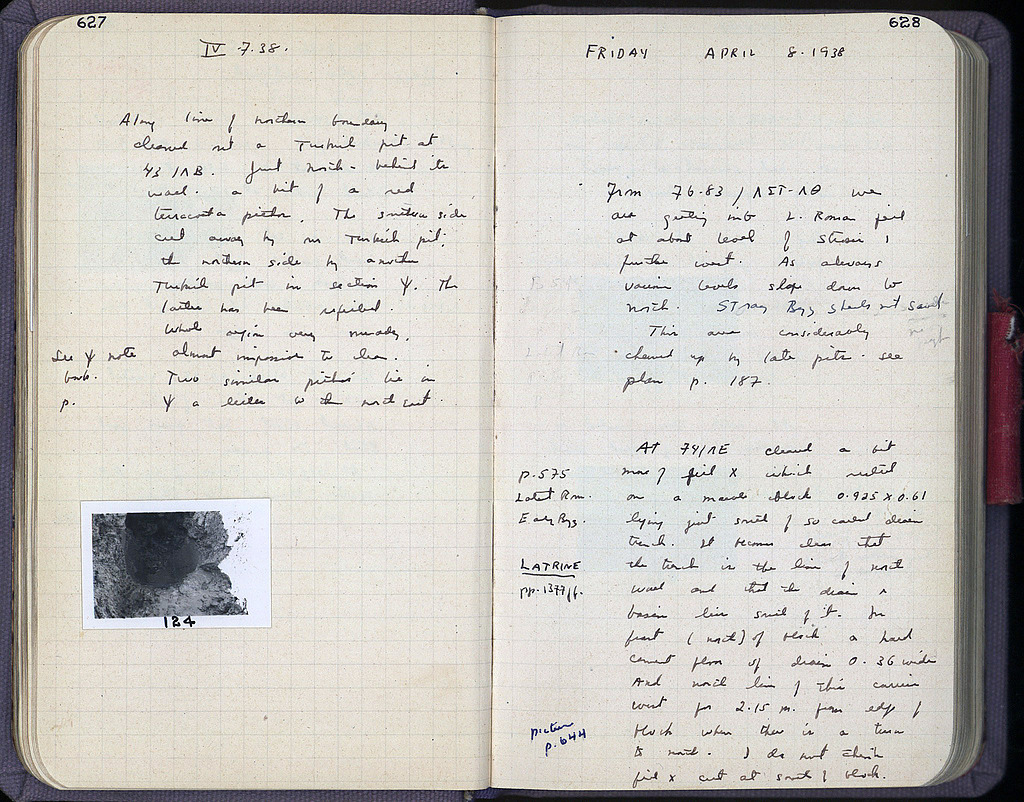 627
IV.7.38.
Along line of northern boundary
cleared out a Turkish pit at
43/ΛB. Just north - behind its
wall. a bit of a red
terracotta pithos. The southern side
cut away by our Turkish pit,
the northern side by another
Turkish pit in section Ψ. The
latter has been refilled.
Whole region very muddy,
almost impossible to clean.
See Ψ note
book.
p.
Two similar pithoi lie in
Ψ a little to the north east.
124
628
FRIDAY APRIL 8.1938
From 76-83/ΛΣΤ-ΛΘ we
are getting into L. Roman fill
at about level of Stosir 1
further west. As always
various levels slope down to
north. Stray Byz sherds not saved
This area considerably
chewed up by late pits. see
plan p. 187.
At 74/ΛE cleared a bit
more of fill X which rested
on a marble block 0.925 x 0.61
lying just south of so called drain
trench. It becomes clear that
the trench is the line of north
wall and that the drain &
basin lie south of it. In
front (north) of block a hard
cement floor of drain 0.36 wide
And north line of this carries
west for 2.15 m. from edge of
block where there is a turn
to north. I do not think
fill X cut at south of block.
p.575
Latest Rm.
Early Byz.
LATRINE
pp.1377ff.
picture
p.644